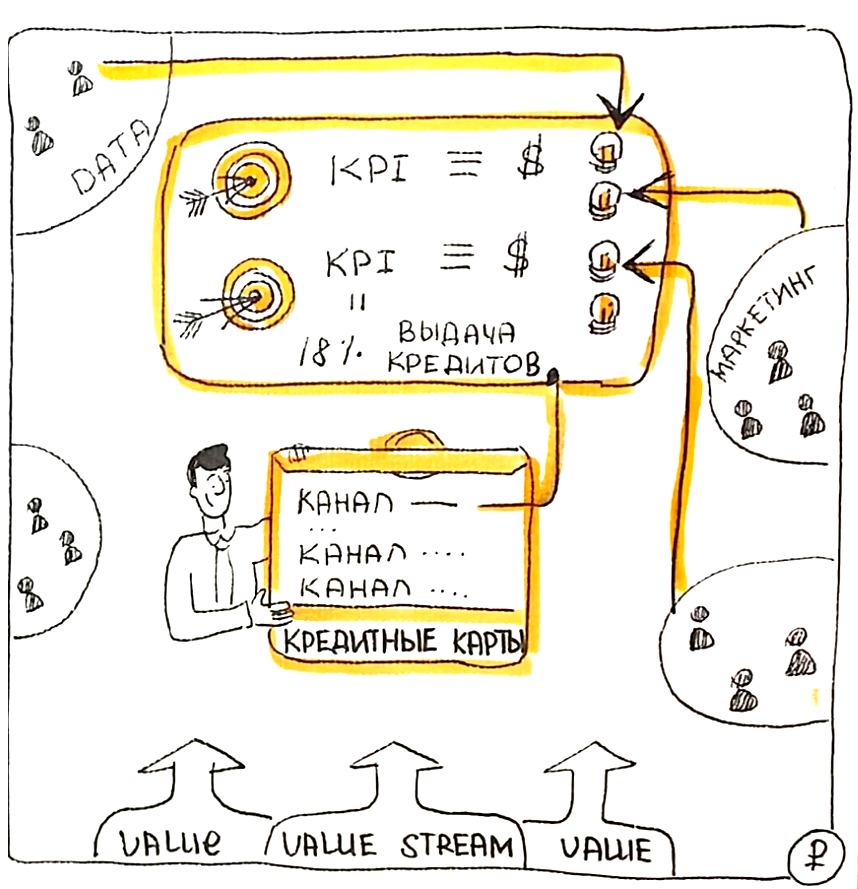 DATA
KPI ≡ $
KPI ≡ $
"
18%. ВЫДАЧА
КРЕДИТОВ
МАРКЕТИНГ
КАНАЛ —
...
КАНАЛ ....
КАНАЛ ....
КРЕДИТНЫЕ КАРТЫ
VALUE
VALUE STREAM
VALUE
₽